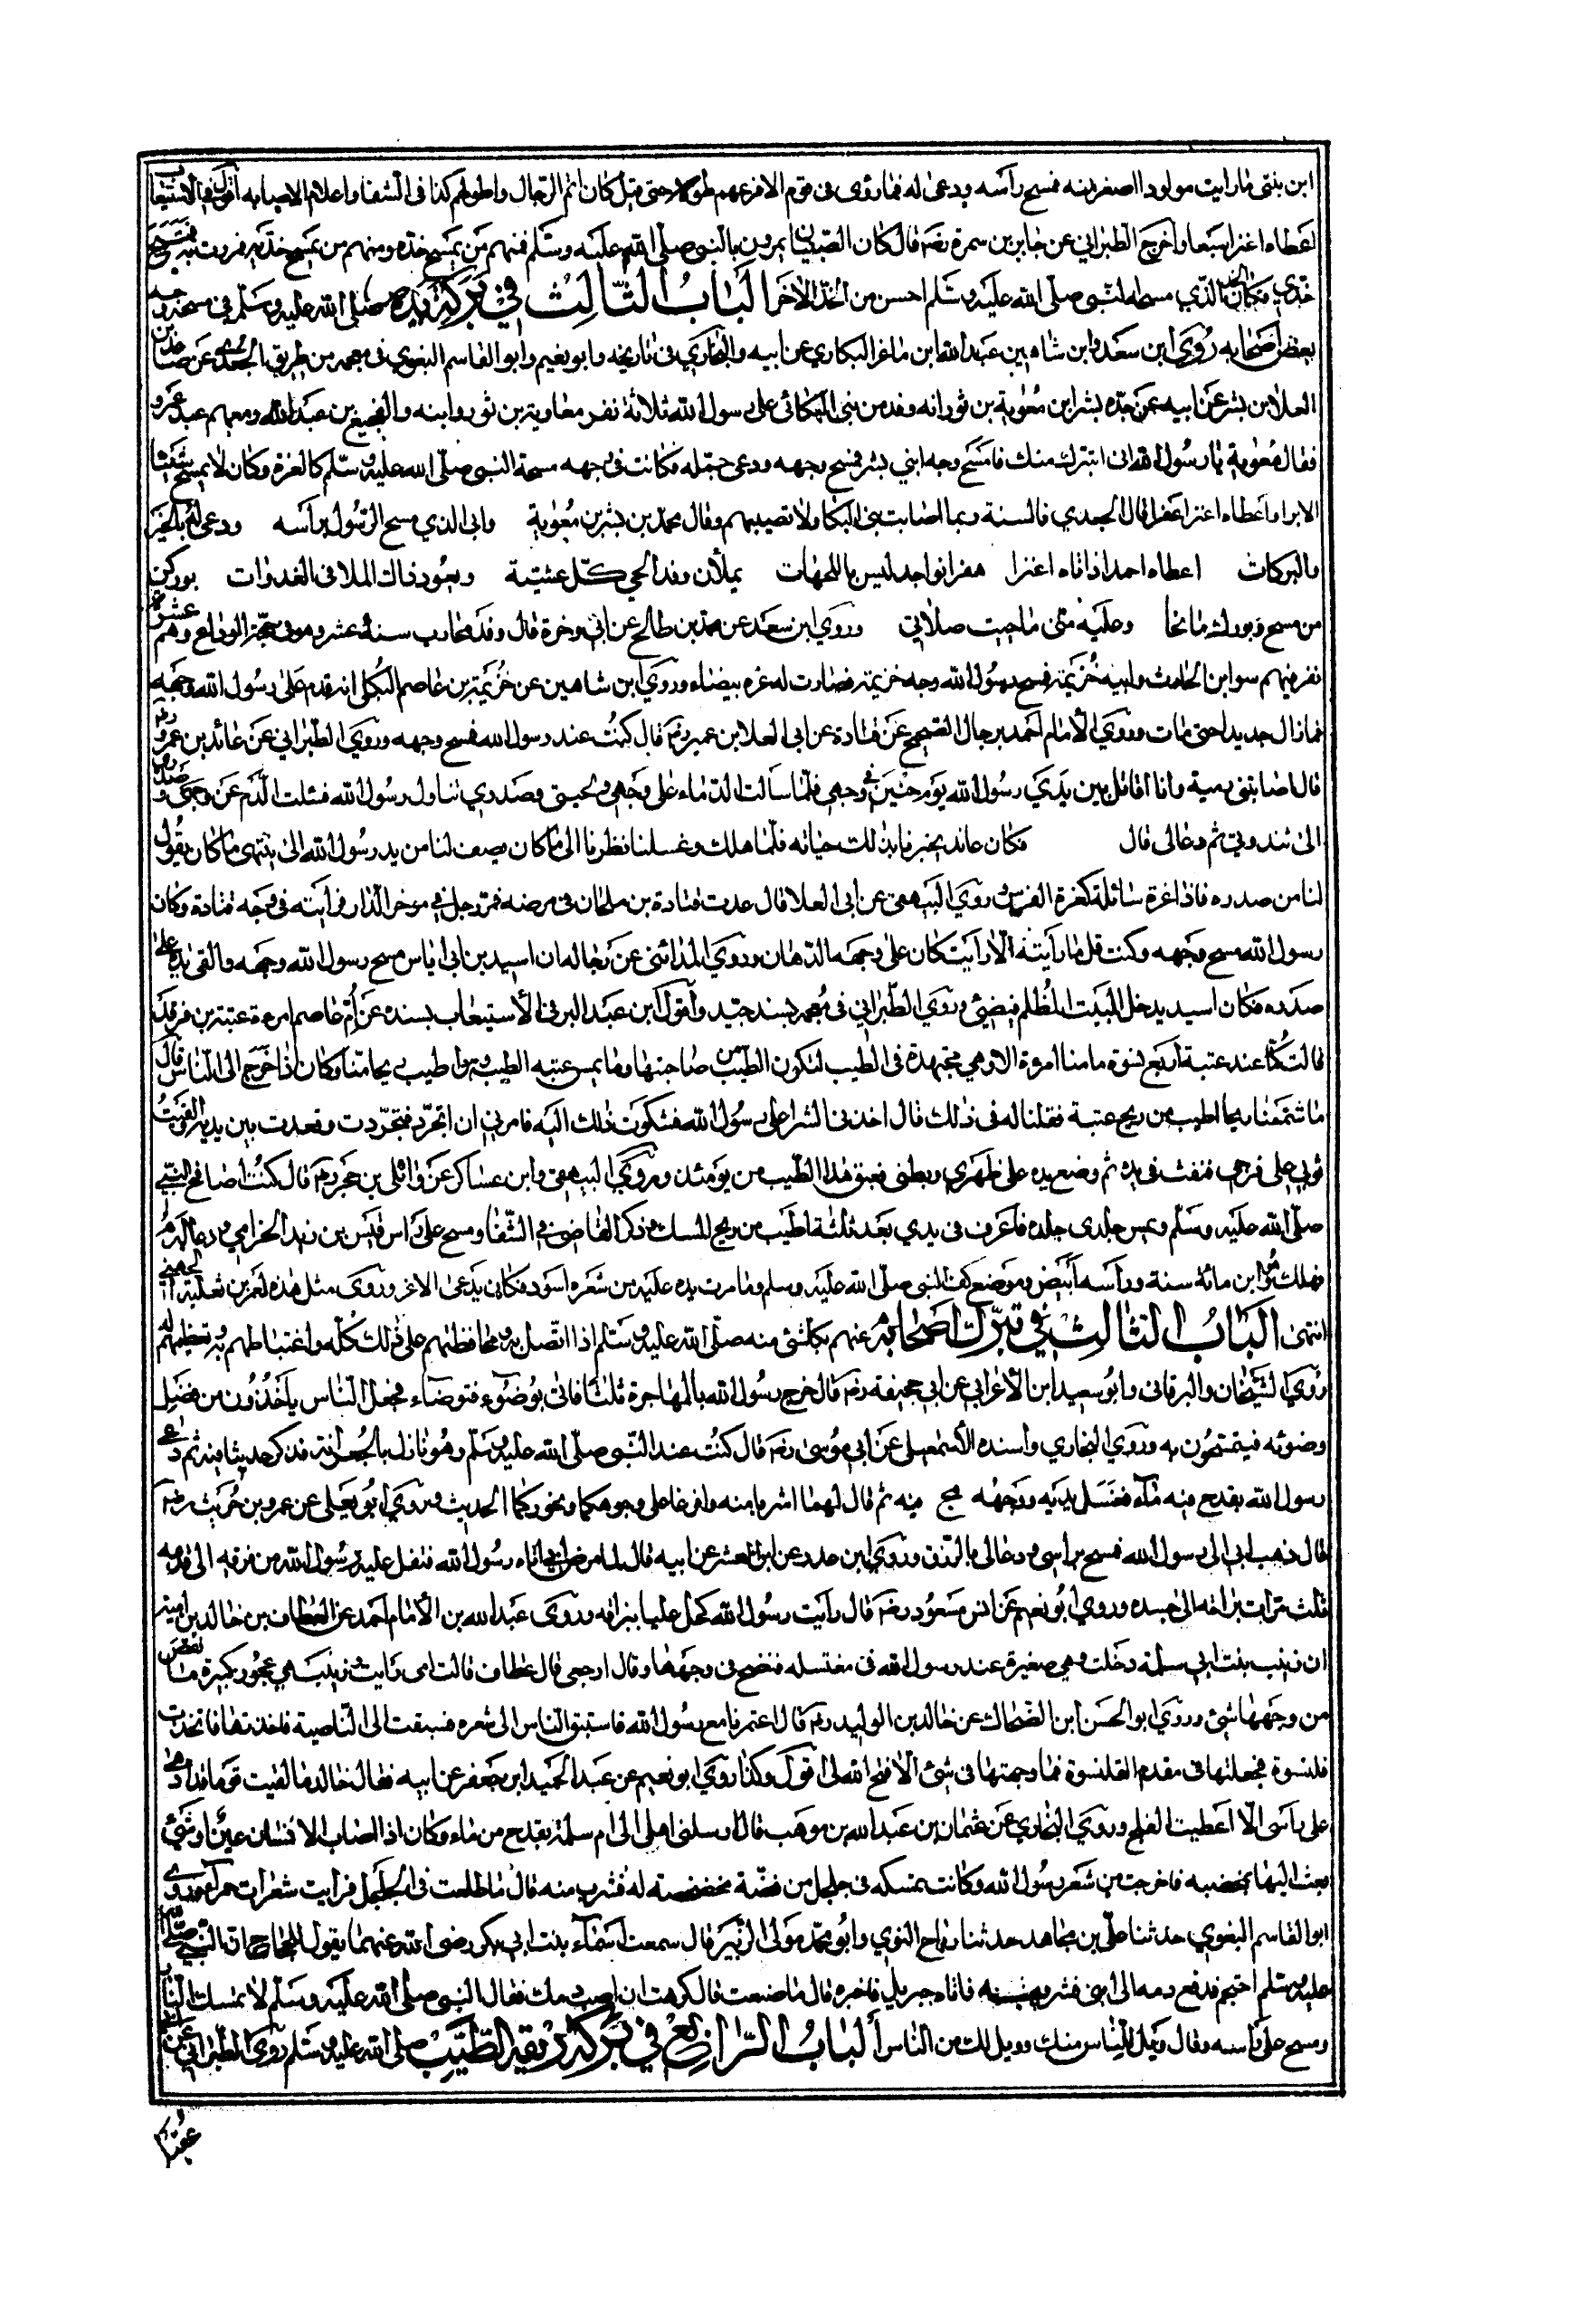 ابن بنتى ما رايت مولودا اصغر منه فمسح رأسه ودعى له فما رؤى فى قوم الا فرعهم طولا حتى قيل كان اتم الرجال واطولهم كذا فى الشفا واعلام الاصابه
اعطاه اعنزا سبعا واخرج الطبراني عن جابر بن سمرة رضه قال كان الصبيان يمرون بالنبى صلى الله عليه وسلم فمنهم من يمسح خده ومنهم من يمسح خديه فمررت به فمسح
خدي فكان الخد الذي مسحه النبى صلى الله عليه وسلم احسن من الخد الاخر الباب الثالث في بركة يده صلى الله عليه وسلم فى مسحه وجه
بعض اصحابه روى ابن سعد وابن شاهين عبد الله ابن ماعز البكاري عن ابيه والبخاري فى تاريخه وابو نعيم وابو القاسم البغوي فى معجمه من طريق الجعد عن صاعد بن
العلا بن بشر عن ابيه عن جده بشر ابن معوية بن ثور انه وفد من بنى البكائى على رسول الله ثلاثة نفر معاوية بن ثور وابنه والفجيع بن عبد الله ومعهم عبد عمرو
فقال معوية يا رسول الله انى اتبرك منك فامسح وجه ابني بشر فمسح وجهه ودعى له فكانت فى وجهه مسحة النبى صلى الله عليه وسلم كالغرة وكان لا يمسح شيئا
الا برا واعطاه اعنزا عفرا قال الجعدي فالسنة ربما اصابت بنى البكا ولا تصيبهم وقال محمد بن بشر بن معوية وابى الذي مسح الرسول برأسه ودعى له بالخير
والبركات اعطاه احمد اذ اتاه اعنزا عفرا نواجد ليس باللجبات يملأن وفد الحي كل عشية ويعود ذاك الملا فى الغدوات بوركن
من منح وبورك مانحا وعليه منى ما حييت صلاتي وروى ابن سعد عن محمد بن صالح عن ابى وجزة قال وفد محارب سنة عشر في حجة الوداع وهم عشرة
نفر فيهم سوا بن الحارث وابنه خزيمة فمسح رسول الله وجه خزيمة فصارت له غرة بيضاء وروى ابن شاهين عن خزيمة بن عاصم البكلى انه قدم على رسول الله فمسح وجهه
فما زال جديدا حتى مات وروى الامام احمد برجال الصحيح عن قتادة عن ابى العلا ابن عمير رضه قال كنت عند رسول الله فمسح وجهه وروى الطبراني عن عائذ بن عمرو رضه
قال اصابتنى رمية وانا اقاتل بين يدي رسول الله يوم حنين فى وجهى فلما سالت الدماء على وجهى ولحيتى وصدري تناول رسول الله فسلت الدم عن وجهى وصدري
الى ثندوتي ثم دعا لى قال فكان عائذ يخبرنا بذلك حياته فلما هلك وغسلنا نظرنا الى ما كان يصف لنا من يد رسول الله الى منتهى ما كان يقول
لنا من صدره فاذا غرة سائلة كغرة الفرس وروى البيهقى عن ابى العلا قال عدت قتادة بن ملحان فى مرضه فمر رجل في موخر الدار فرايته فى وجه قتادة وكان
رسول الله مسح وجهه وكنت قل ما رأيته الا رأيت كان على وجهه الدهان وروى المدائنى عن رجاله ان اسيد بن ابى اياس مسح رسول الله وجهه والقى يده على
صدره فكان اسيد يدخل البيت المظلم فيضئ وروى الطبراني فى معجمه بسند جيد واقول ابن عبد البر فى الاستيعاب بسنده عن ام عاصم امرءة عتبة بن فرقد
قالت كنا عند عتبة اربع نسوة ما منا امرءة الا وهي مجتهدة فى الطيب لتكون اطيب من صاحبتها وما يمس عتبه الطيب وهو اطيب ريحا منا وكان اذا خرج الى الناس قال
ما شممنا ريحا اطيب من ريح عتبة فقلنا له فى ذلك قال اخذنى الشرا على رسول الله فشكوت ذلك اليه فامرني ان اتجرد فتجردت وقعدت بين يديه والقيت
ثوبي على فرجى فنفث فى يده ثم وضع يده على ظهري وبطنى فعبق هذا الطيب من يومئذ وروى البيهقى وابن عساكر عن وائل بن حجر رضه قال كنت اصافح النبي
صلى الله عليه وسلم ويمس جلدى جلده فاعرف فى يدي بعد ثلثة اطيب من ريح المسك وذكر القاضى في الشفا ومسح على رأس قيس بن زيد الجزامي ودعا له
فهلك وهو ابن مائة سنة ورأسه أبيض وموضع كف النبى صلى الله عليه وسلم وما مرت يده عليه من شعره اسود فكان يدعى الاغر وروى مثل هذه لعمر بن ثعلبة الجهني
انتهى الباب الثالث في تبرك اصحابه رضى عنهم بكل شئ منه صلى الله عليه وسلم اذا اتصل به ومحافظتهم على ذلك كله واغتباطهم به وتعظيمهم له
روى الشيخان والبرقانى وابو سعيد ابن الأعرابي عن ابي جحيفة رضه قال خرج رسول الله بالهاجرة فاتى بوضوء فتوضاء فجعل الناس ياخذون من فضل
وضوئه فيتمسحون به وروى البخاري واسنده الأسمعيلى عن ابى موسى رضه قال كنت عند النبى صلى الله عليه وسلم وهو نازل بالجعرانة فذكر حديثا فيه ثم دعى
رسول الله بقدح فيه ماء فغسل يديه ووجهه مج فيه ثم قال لهما اشربا منه وافرغا على وجوهكما ونحوركما الحديث وروى ابو يعلى عن عمرو بن حريث رضه
قال ذهب ابى الى رسول الله فمسح براسى ودعا لى بالرزق وروى ابن عدد عن ابى العشر عن ابيه قال لما مرض ابى اتاه رسول الله فتفل عليه رسول الله من قرنه الى قدمه
ثلث مرات برائقه الى جسده وروى ابو نعيم عن انس مسعود رضه قال رايت رسول الله كحل عليا ببزاقه وروى عبد الله بن الامام احمد عن العطاف بن خالد بن امية
ان زينب بنت ابي سلمة دخلت وهي صغيرة عند رسول الله فى مغتسله فنضح فى وجهها وقال ارجعى قال عطاف قالت امى رايت زينب وهي عجوز كبيرة ما نقص
من وجهها شئ وروى ابو الحسن ابن الضحاك عن خالد بن الوليد رضه قال اعتمرنا مع رسول الله فاستبق الناس الى شعره فسبقت الى الناصية فاخذتها فاتخذت
قلنسوة فجعلتها فى مقدم القلنسوة فما وجهتها فى شئ الا فتح الله لى اقول وكذا روى ابو نعيم عن عبد الحميد ابن جعفر عن ابيه فقال خالد فما لقيت قوما
على رأسى الا اعطيت الفلح وروى البخاري عن عثمان بن عبد الله بن موهب قال ارسلنى اهلى الى ام سلمة بقدح من ماء وكان اذا اصاب الانسان عين او شئ
بعث اليها مخضبه فاخرجت من شعر رسول الله وكانت تمسكه فى جلجل من فضة فخضخضته له فشرب منه قال فاطلعت فى الجلجل فرايت شعرات حمراء وروى
ابو القاسم البغوي حدثنا على بن مجاهد حدثنا رباح النوي وابو محمد مولى الزبير قال سمعت اسماء بنت ابي بكر رضى الله عنهما يقول للحجاج ان النبي صلى الله
عليه وسلم احتجم فدفع دمه الى ابنى فشربه فاتاه جبريل فاخبره قال ما صنعت قال كرهت ان اصب دمك فقال النبى صلى الله عليه وسلم لا تمسك النار
ومسح على رأسه وقال ويل للناس منك وويل لك من الناس الباب الرابع في بركة ريقه الطيب صلى الله عليه وسلم روى الطبراني عن